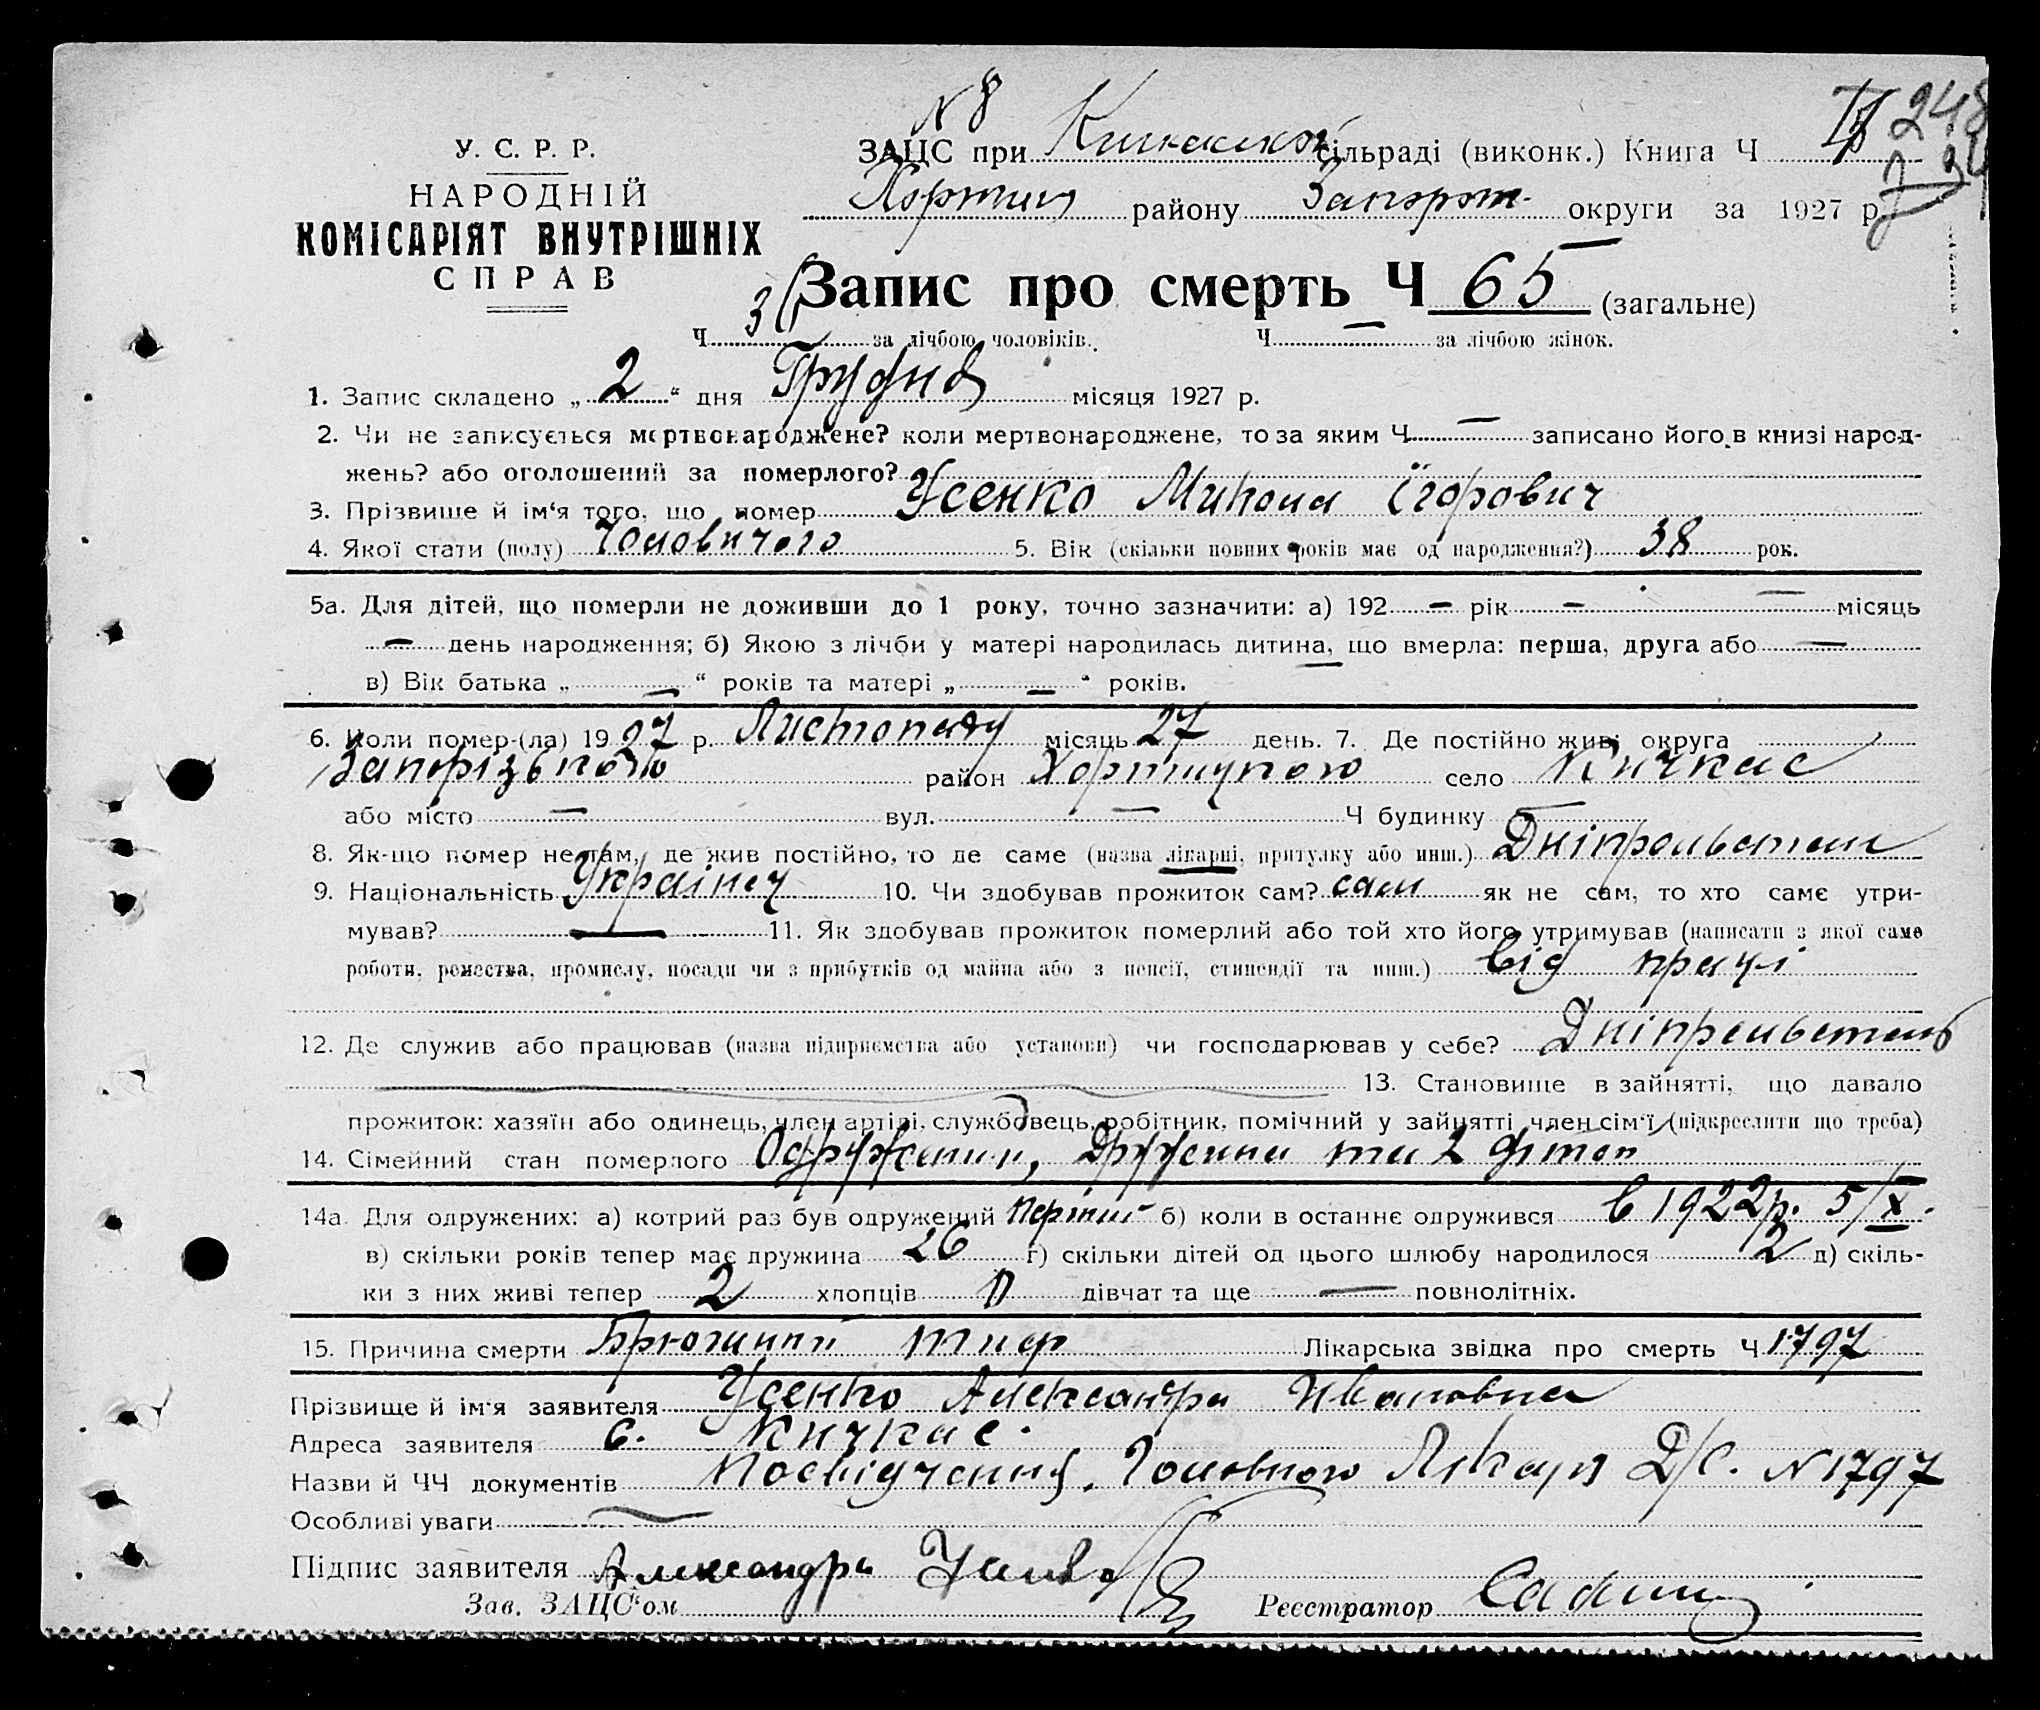 N 8
II 248
У. С. Р. Р.
НАРОДНІЙ
КОМІСАРІЯТ ВНУТРІШНІХ
СПРАВ
ЗАЦС при Кичкаській сільраді (виконк.) Книга Ч
Хортиц району Запоріж. округи за 1927 р.
Запис про смерть Ч 65 (загальне)
Ч 36 за лічбою чоловіків. Ч — за лічбою жінок.
1. Запис складено „ 2 “ дня Грудня місяця 1927 р.
2. Чи не записується мертвонароджене? коли мертвонароджене, то за яким Ч — записано його в книзі народ-
жень? або оголошений за померлого?
3. Прізвище й ім‘я того, що помер Усенко Микола Ігорович
4. Якої стати (полу) Чоловічого 5. Вік (скільки повних років має од народження?) 38 рок.
5а. Для дітей, що померли не доживши до 1 року, точно зазначити: а) 192 — рік — — місяць
— день народження; б) Якою з лічби у матері народилась дитина, що вмерла: перша, друга або —
в) Вік батька „ — “ років та матері „ — “ років.
6. Коли помер-(ла) 1927 р. Листопаду місяць 27 день. 7. Де постійно жив: округа
Запорізькою район Хортицького село Кичкас
або місто — вул. — Ч будинку —
8. Як-що помер не там, де жив постійно, то де саме (назва лікарні, притулку або инш.) Дніпрельстан
9. Національність Українец 10. Чи здобував прожиток сам? сам як не сам, то хто саме утри-
мував? — 11. Як здобував прожиток померлий або той хто його утримував (написати з якої саме
роботи, ремества, промислу, посади чи з прибутків од майна або з пенсії, стипендії та инш.) від праці
12. Де служив або працював (назва підприємства або установи) чи господарював у себе? Дніпрельстань
13. Становище в зайнятті, що давало
прожиток: хазяїн або одинець, член артілі, службовець, робітник, помічний у зайнятті член сім‘ї (підкреслити що треба)
14. Сімейний стан померлого Одружений, Дружина та 2 дітей
14а. Для одружених: а) котрий раз був одружений Перший б) коли в останнє одружився в 1922 р. 5/X.
в) скільки років тепер має дружина 26 г) скільки дітей од цього шлюбу народилося 2 д) скіль-
ки з них живі тепер 2 хлопців дівчат та ще — повнолітніх.
15. Причина смерти Брюшний тиф Лікарська звідка про смерть Ч 1797
Прізвище й ім‘я заявителя Усенко Александра Ивановна
Адреса заявителя с. Кичкас.
Назви й ЧЧ документів Посвідчення Головного Лікаря Д/С. N 1797
Особливі уваги —
Підпис заявителя Александра
Зав. ЗАЦС‘ом Реєстратор